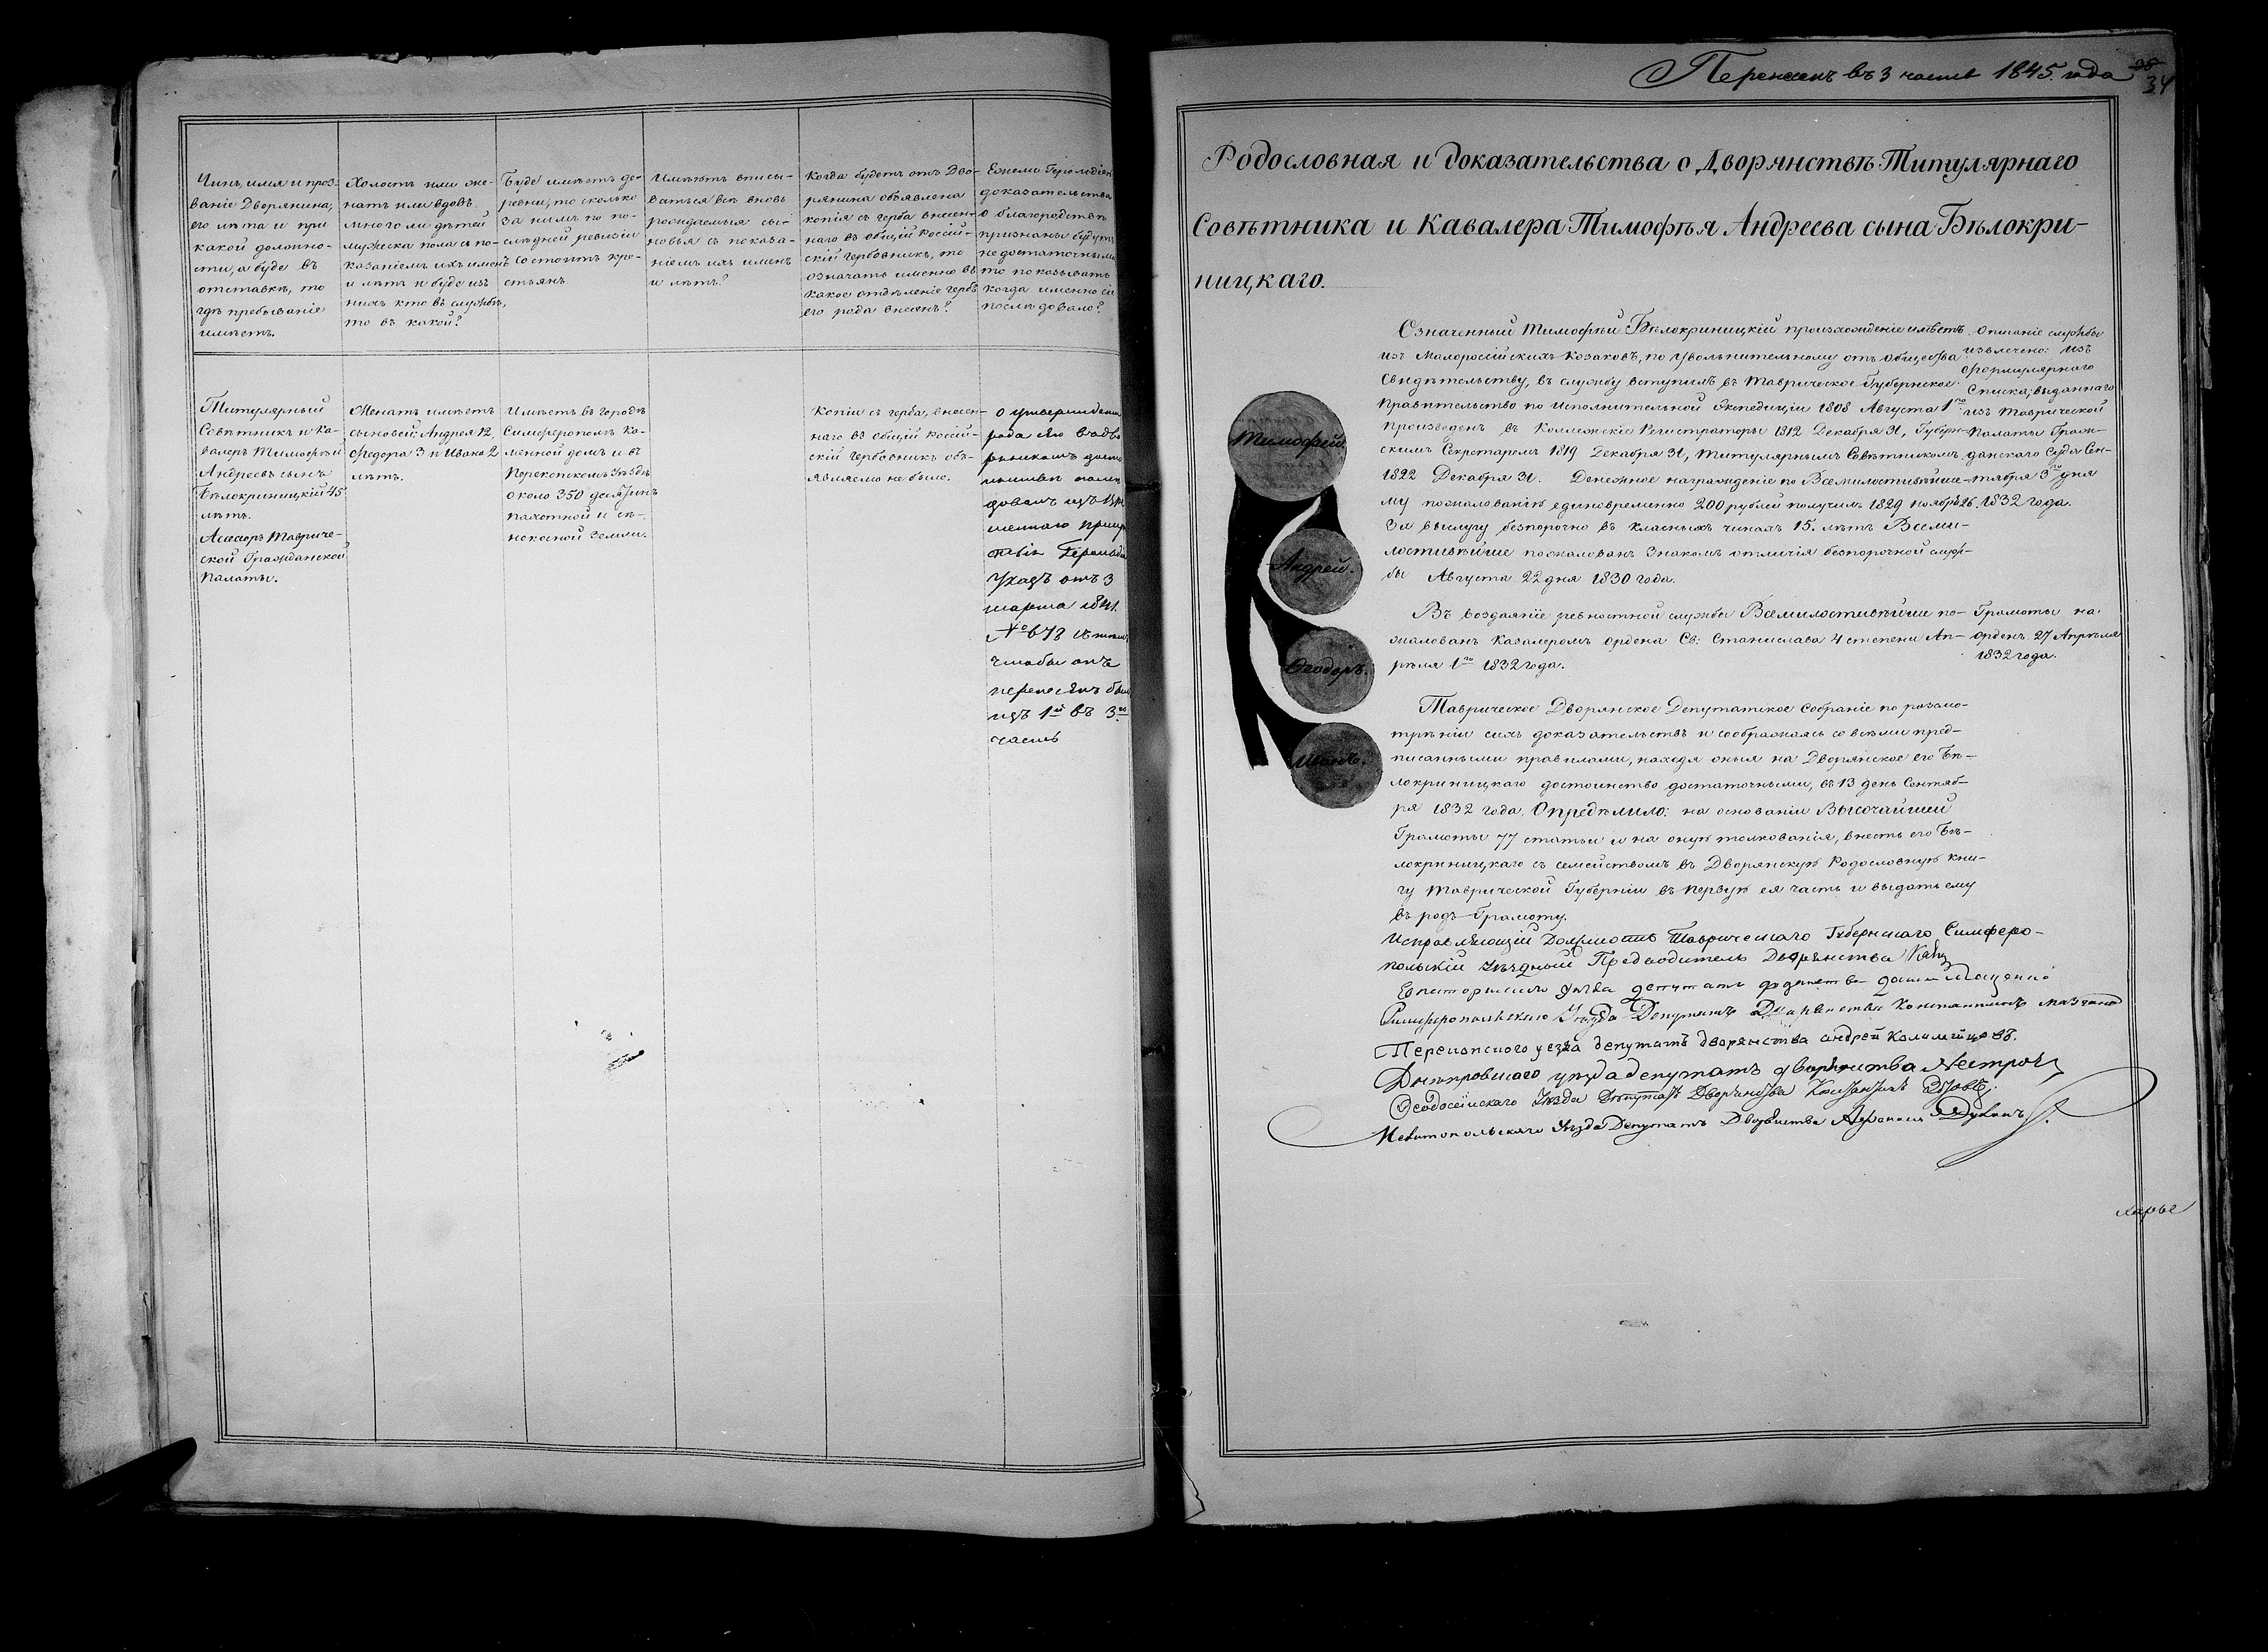 Чинъ, имя и проз-
ваніе Дворянина,
его лѣта и при
какой должно-
сти, а буде въ
отставкѣ, то
гдѣ пребываніе
имѣетъ.
Холостъ или же-
натъ или вдовъ
много ли дѣтей
мужеска пола съ по-
казаніемъ ихъ именъ
и лѣтъ и буде изъ
нихъ кто въ службѣ,
то въ какой?
Буде имѣетъ де-
ревни, то сколько
за нимъ по по-
слѣдней ревизіи
состоитъ кре-
стьянъ
Имѣютъ вписы-
ваться всѣ вновь
рождаемыя сы-
новья съ показа-
ніемъ ихъ именъ
и лѣтъ?
Когда будетъ отъ Дво-
рянина объявлена
копія съ герба внесен-
наго въ общій Россій-
скій Гербовникъ, то
означать именно въ
какое отдѣленіе гербъ
его рода внесенъ?
Ежели Герольдіею
доказательства
о благородствѣ
признаны будутъ
недостаточными
то показывать
когда именно сіе
послѣдовало?
Титулярный
Совѣтникъ и Ка-
валеръ Тимофѣй
Андреевъ сынъ
Бѣлокриницкій 45
лѣтъ.
Асессоръ Тавриче-
ской Гражданской
Палаты.
Женатъ имѣетъ
сыновей: Андрея 12,
Федора 3 и Ивана 2
лѣтъ.
Имѣетъ въ городѣ
Симферополѣ ка-
менной домъ и въ
Перекопскомъ Уѣздѣ
около 350 десятинъ
пахотной и сѣ-
нокосной земли.
Копіи съ герба, внесен-
наго въ общій Россій-
скій Гербовникъ объ-
являемо не было.
О утвержденіи
рода его въ дво
рянскомъ досто
послѣ
довалъ изъ Вре
меннаго Присут
ствія Герольдіи
Указъ отъ 3
марта 1841.
№ 678 съ тѣмъ
чтобы онъ
перенесенъ былъ
изъ 1й въ 3ю
часть
Перенесенъ въ 3 часть 1845. года
34
Родословная и доказательства о Дворянствѣ Титулярнаго
Совѣтника и Кавалера Тимофѣя Андреева сына Бѣлокри-
ницкаго.
Тимофей.
Андрей.
Ѳеодоръ.
Иванъ.
Означенный Тимофей Бѣлокриницкій произхожденіе имѣетъ
изъ Малороссійскихъ Козаковъ, по Увольнительному отъ общества
Свидѣтельству, въ службу вступилъ въ Таврическое Губернское
Правительство по исполнительной Экспедиціи 1808 Августа 1го
произведенъ въ Коллежскіе Регистраторы 1812 Декабря 31, Губерн-
скимъ Секретаремъ 1819 Декабря 31, Титулярнымъ Совѣтникомъ
1822 Декабря 31. Денежное награжденіе по Всемилостивѣйше-
му пожалованію единовременно 200 рублей получилъ 1829 Ноября 26.
За выслугу безпорочно въ класныхъ чинахъ 15. лѣтъ Всеми-
лостивѣйше пожалованъ Знакомъ отличія безпорочной служ-
бы Августа 22 дня 1830 года.
Описаніе службы
извлечено: изъ
Формулярнаго
Списка, выданнаго
изъ Таврической
Палаты Граж-
данскаго Суда Сен-
тября 3го дня
1832 года.
Въ воздаяніе ревностной службы Всемилостивѣйше по-
жалованъ Кавалеромъ ордена Св: Станислава 4 степени Ап-
рѣля 1го 1832 года.
Грамоты на
орденъ 27 Апрѣля
1832 года.
Таврическое Дворянское Депутатское Собраніе по разсмо-
трѣніи сихъ доказательствъ и сображаясь со всѣми пред-
писанными правилами, находя оныя на Дворянское его Бѣ-
локриницкаго достоинство достаточными, въ 13 день Сентяб-
ря 1832 года. Опредѣлило: на основаніи Высочайшей
Грамоты 77 статьи и на оную толкованія, внесть его Бѣ-
локриницкаго съ семействомъ въ Дворянскую Родословную кни-
гу Таврической Губерніи въ первую ея часть и выдать ему
въ родъ Грамоту.
Исправляющій Должность Таврическаго Губернскаго Симферо-
польскій Уѣздный Предводитель Дворянства
Симферопольскаго Уѣзда Депутатъ Дворянства Константинъ
Перекопского уезда депутатъ дворянства андрей Коломійцовъ.
Днѣпровскаго уѣзда депутатъ дворянства
Ѳеодосійскаго Уѣзда Депутатъ Дворянства
Мелитопольскаго Уѣзда Депутатъ Дворянства